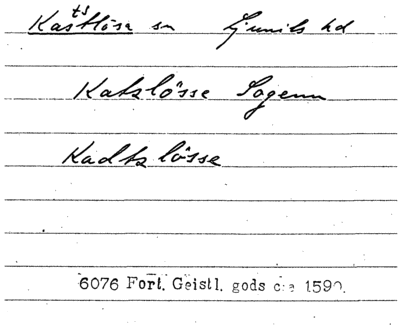 Kastlösa sn Ljunits hd
ts
Katzlösse Sogenn
Kadtz lösse
6076 Fort. Geistl. gods c:a 1590.